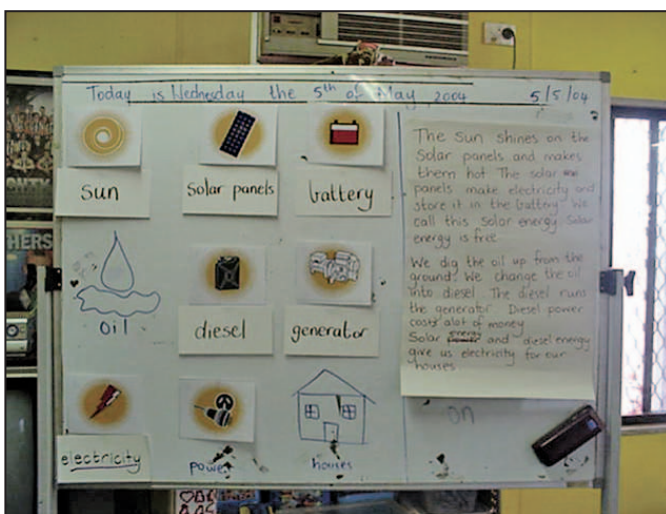 Today is Wednesday the 5th of May 2004 5/5/04
sun
solar panels
battery
oil
diesel
generator
electricity
power
houses
The sun shines on the
solar panels and makes
them hot The solar
panels make electricity and
store it in the battery. We
call this solar energy. Solar
energy is free.
We dig the oil up from the
ground. We change the oil
into diesel. The diesel runs
the generator. Diesel power
costs alot of money
Solar energy and diesel energy
give us electricity for our
houses.
on
HERS